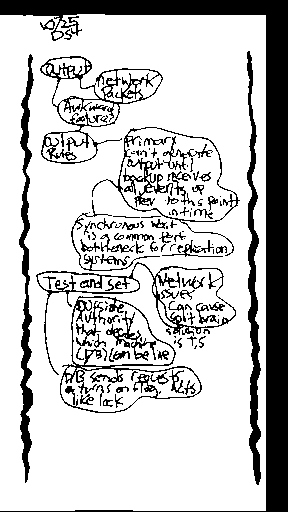 10/25
DS4
Output
Network
Packets
Awkward
feature?
Output
Rules
Primary
can't generate
output until
backup receives
all events up
Prev to this point
in time
Synchronous Wait
is a common perf
bottleneck for replication
systems
Test and Set
Network
issues
Can cause
split brain
solution
is T.S
Outside
Authority
that decides
which machine
(P/B) can be live
P/B sends requests
& turns on flag, Acts
like lock